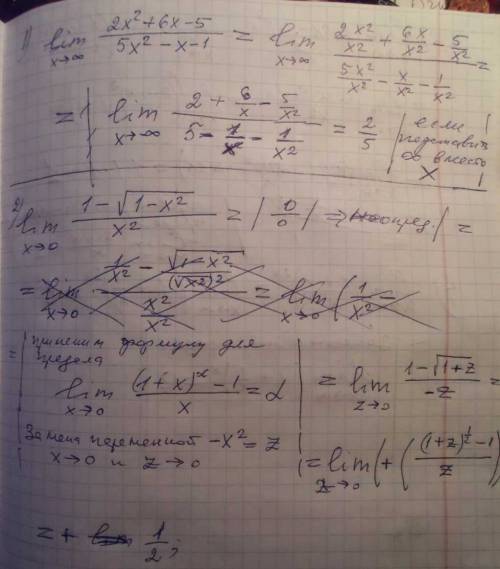 1) lim x→∞ (2x²+6x-5)/(5x²-x-1) = lim x→∞ (2x²/x² + 6x/x² - 5/x²)/(5x²/x² - x/x² - 1/x²) =
= | lim x→∞ (2 + 6/x - 5/x²)/(5 - 1/x - 1/x²) = 2/5 | если подставить ∞ вместо x |
2) lim x→0 (1-√(1-x²))/x² = | 0/0 | ⇒ неопред. | =
= lim x→0 (1/x² - √(1-x²)/(√x²)²)/(x²/x²) = lim x→0 (1/x² -
= | применим формулу для
предела
lim x→0 ((1+x)^α - 1)/x = α | = lim z→0 (1-√(1+z))/(-z) =
Замена переменной -x² = z
x→0 и z→0 | = lim z→0 (+ (((1+z)^(1/2) - 1)/z)
= + 1/2;